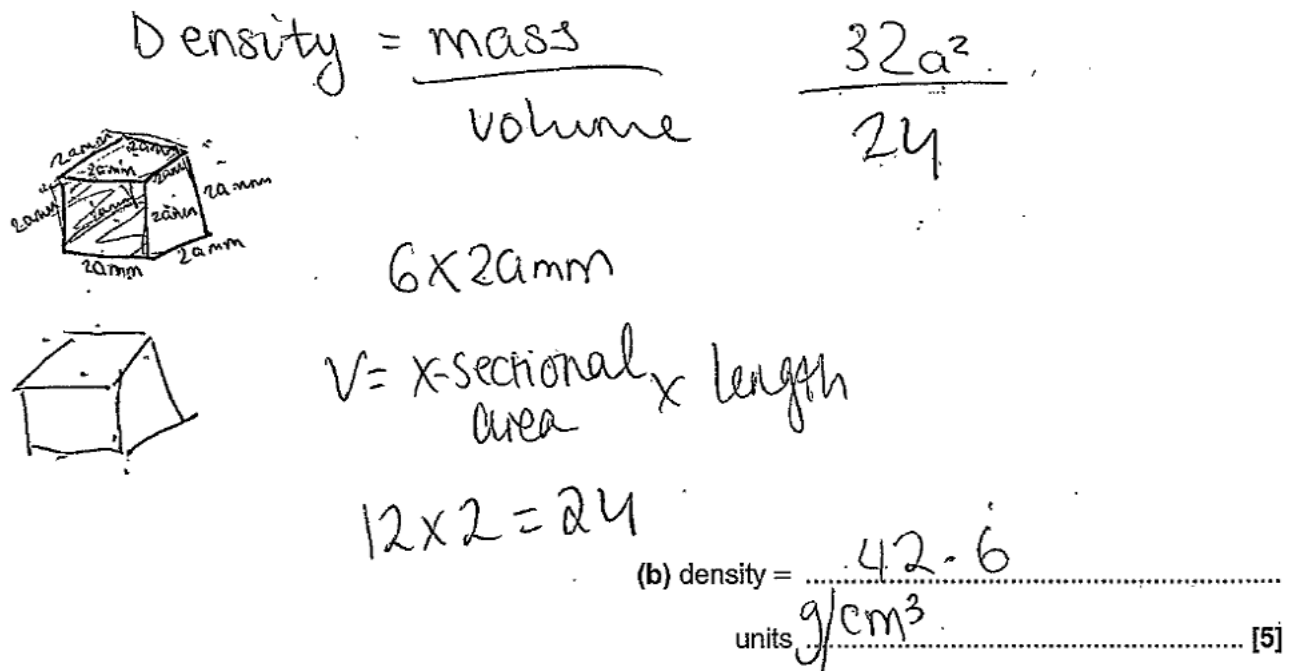 Density = mass / volume
32a² / 24
2amm 2amm
2amm 2amm
2amm 2amm 2amm 2amm
2amm 2amm
6×2amm
V= x-sectional area × length
12×2=24
(b) density = 42.6̇
units g/cm³ [5]